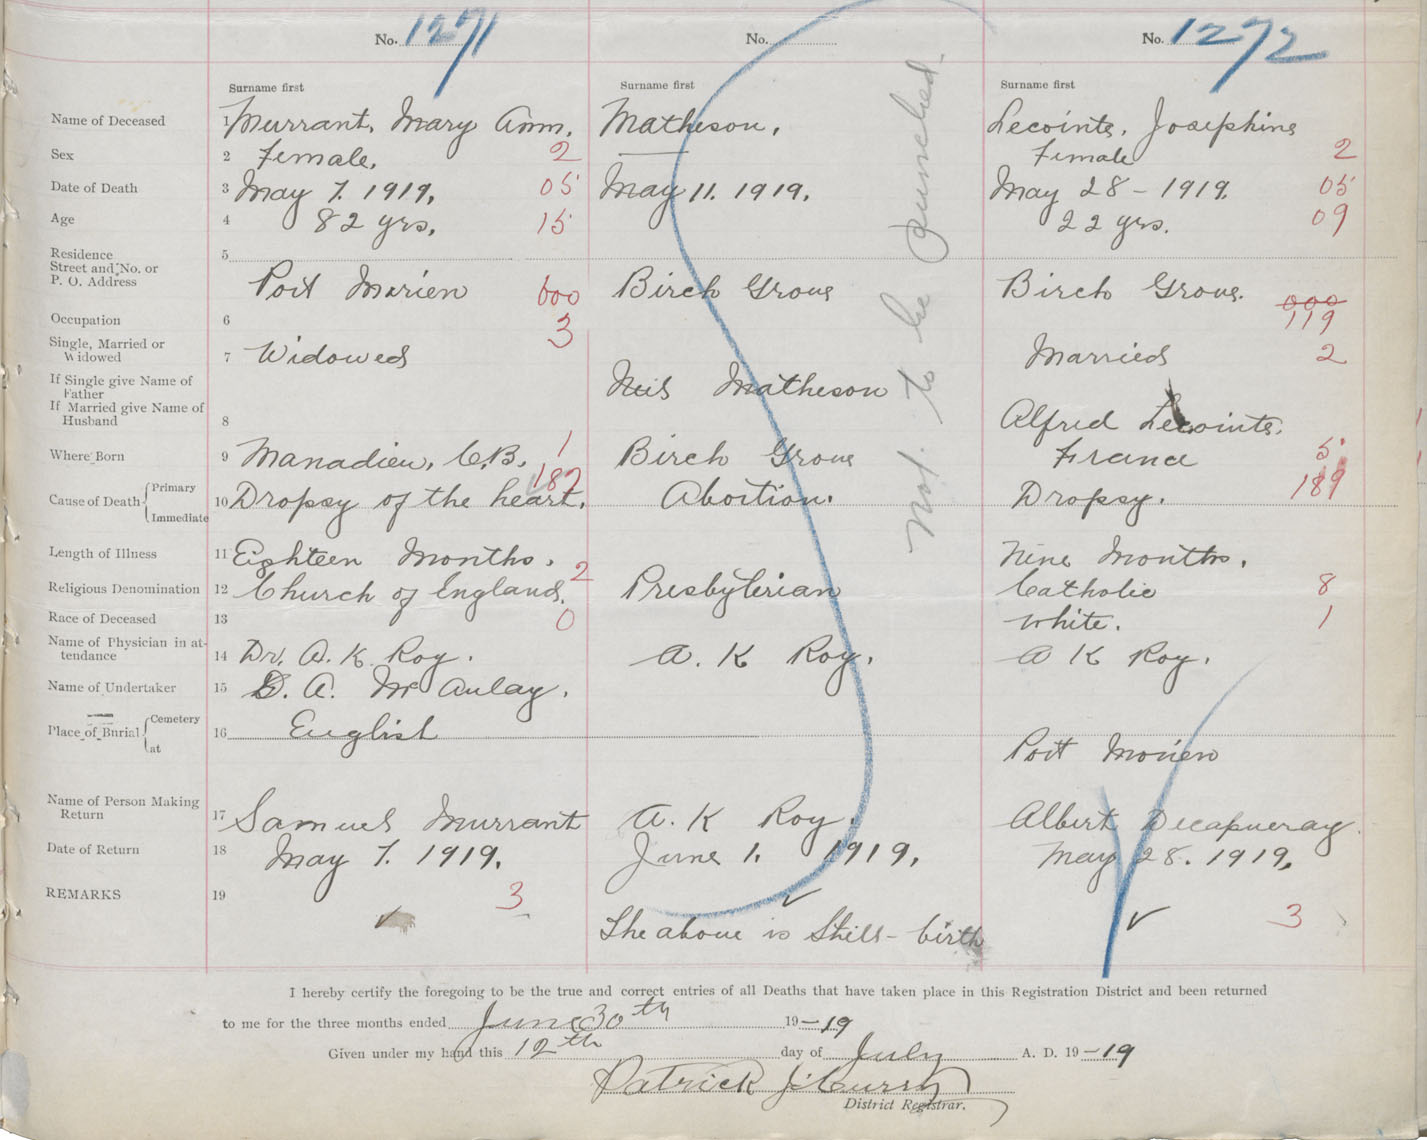 No. 1271 No. No. 1272
Surname first Surname first Surname first
Name of Deceased 1 Murrant, Mary Ann. Matheson, Lecointe, Josephine
Sex 2 Female, 2 Female 2
Date of Death 3 May 7. 1919, 05 May 11. 1919, May 28 - 1919. 05
Age 4 82 yrs, 15 22 yrs. 09
Residence 5
Street and No. or
P. O. Address Port Morien 600 Birch Grove Birch Grove. 000
Occupation 6 3 119
Single, Married or
Widowed 7 Widowed Married 2
If Single give Name of
Father Neil Matheson
If Married give Name of
Husband 8 Alfred Lecointe,
Where Born 9 Manadieu, C.B. 1 Birch Grove France 5
Cause of Death { Primary 187 189
10 Dropsy of the heart. Abortion. Dropsy.
Immediate
Length of Illness 11 Eighteen Months. Nine Months.
Religious Denomination 12 Church of England. 2 Presbyterian Catholic 8
Race of Deceased 13 0 White. 1
Name of Physician in at-
tendance 14 Dr. A. K. Roy. A. K Roy. A K Roy.
Name of Undertaker 15 D. A. McAulay.
Place of Burial { Cemetery
16 English
at Port Morien
Name of Person Making
Return 17 Samuel Murrant A. K Roy. Albert
Date of Return 18 May 7. 1919. June 1. 1919, May 28. 1919,
REMARKS 19 3 3
The above is Still-birth
Not to be punched.
I hereby certify the foregoing to be the true and correct entries of all Deaths that have taken place in this Registration District and been returned
to me for the three months ended June 30th 19-19
Given under my hand this 12th day of July A. D. 19-19
Patrick J. Curry
District Registrar.